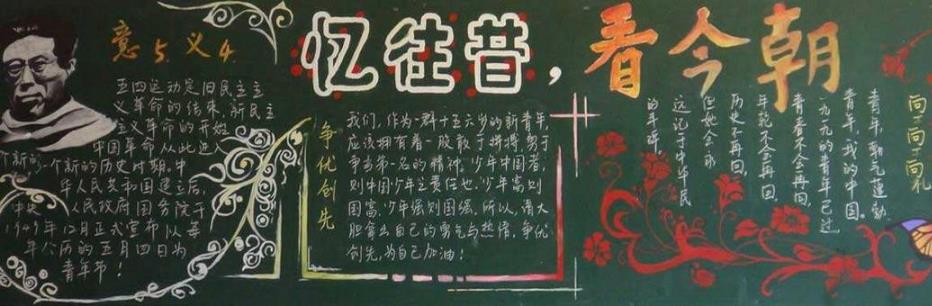 意5.义4.
五四运动是旧民主主
义革命的结束,新民主
主义革命的开始
中国革命从此进入
个新的个新的历史时期.中
华人民共和国建立后,
中央人民政府国务院于
1949年12月正式宣布以每
年公历的五月四日为
青年节!
忆往昔,看今朝
争优创先
我们,作为一群十五六岁的新青年,
应该拥有着一股敢于拼搏,勇于
争当第一名的精神。少年中国者,
则中国少年之责任也。少年富则
国富,少年强则国强。所以,请大
胆拿出自己的勇气与热情,争优
创先,为自己加油!
青年,朝气蓬勃
青年,我的中国。
一九一九的青年已过
青春不会再回
年龄不会再回
历史不再回,
但她会永
远记于中华民